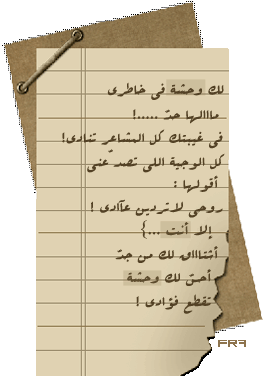 لك وحشة فى خاطرى
مااالها حدّ .....!
فى غيبتك كل المشاعر تنادى!
كل الوجية اللى تصد عنى
أقولها :
روحى لاتردين عآادى !
إلا أنت ...}
أشتاااق لك من جدّ
أحسّ لك وحشة
تقطع فؤادى !
FRA